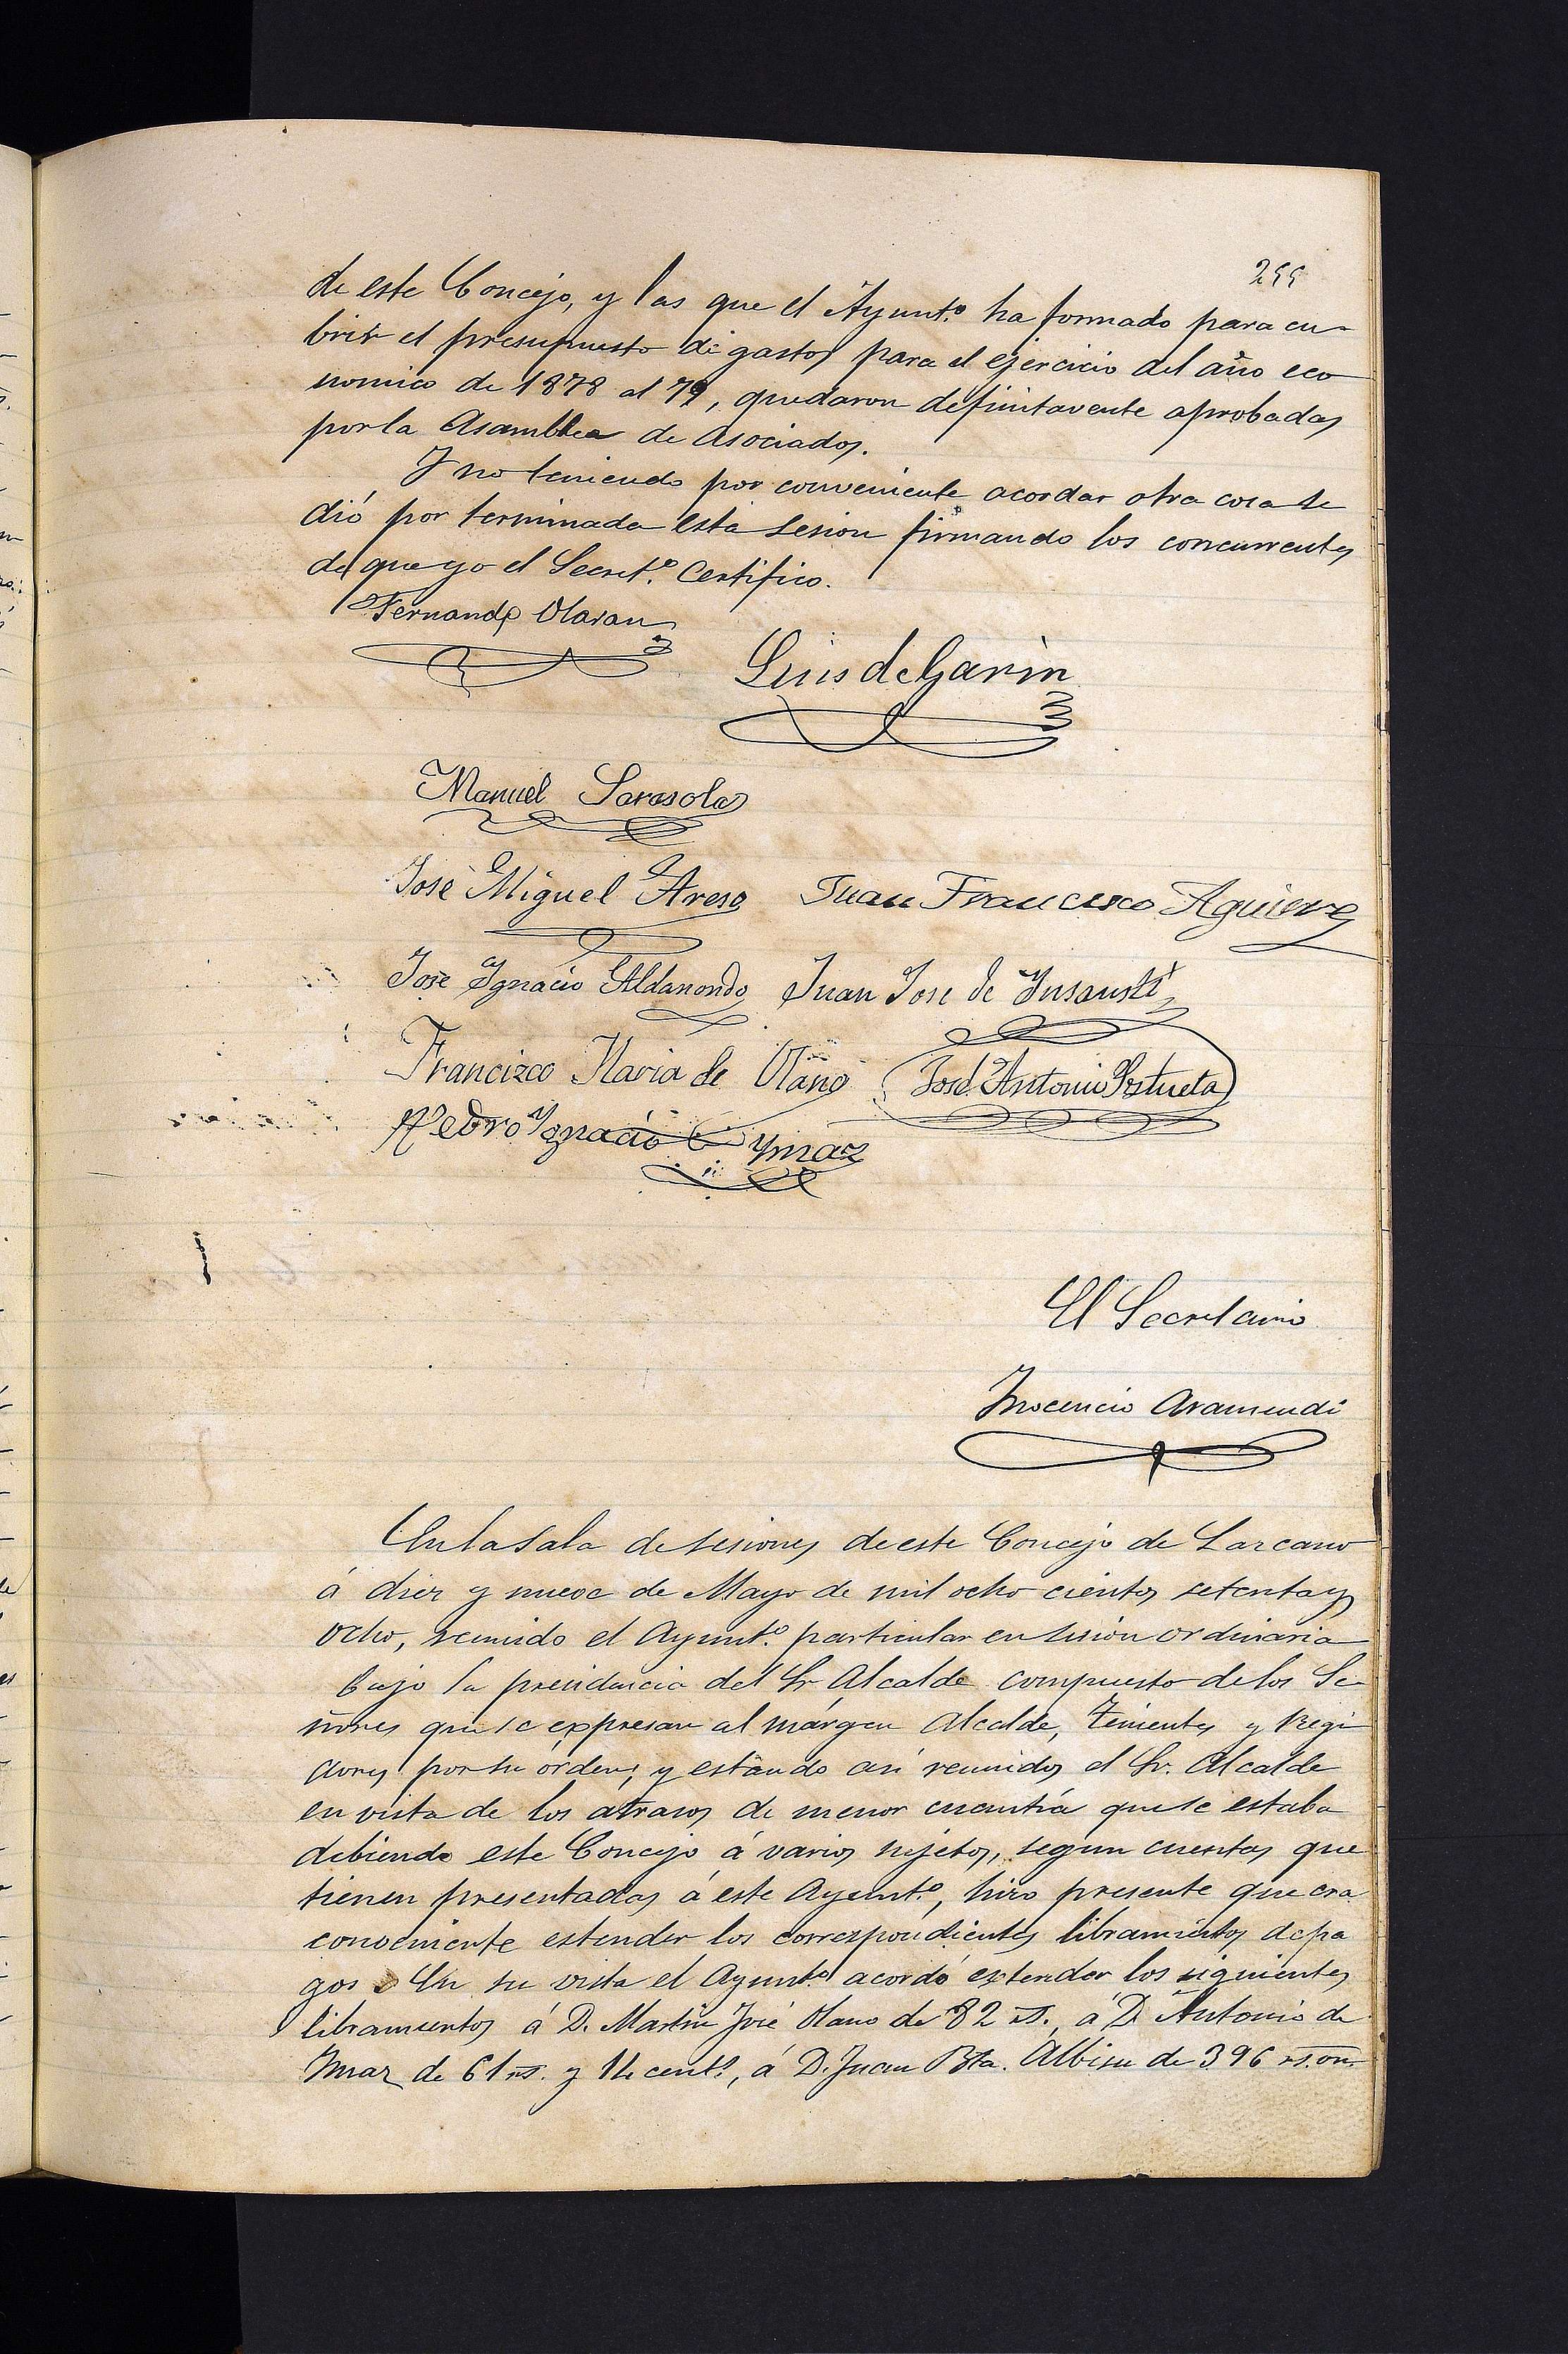 299
de este Concejo, y las que el Ayunt.º ha formado para cu-
brir el presupuesto de gastos para el ejercicio del año eco
nomico de 1878 al 79, quedaron definitavente aprobadas
por la Asamblea de Asociados.
Y no teniendo por conveniente acordar otra cosa se
dió por terminada esta sesion firmando los concurrentes
de que yo el Secret.º Certifico.
Fernando Olaran
Luis de Garin
Manuel Sarasola
José Miguel Areso Juan Francisco Aguirre
José Ignacio Aldanondo Juan José de Insausti
Francizco Maria de Olano José Antonio
Pedro Ygnacio Ymaz
El Secretario
Inocencio Aramendi
En la Sala de sesiones de este Concejo de Lazcano
á diez y nueve de Mayo de mil ocho cientos setenta y
ocho, reunido el Ayunt.º particular en sesion ordinaria
bajo la presidencia del Sr Alcalde compuesto de los Se-
ñores que se expresan al márgen Alcalde, Tenientes y Regi
dores por su órden; y estando asi reunidos el Sr. Alcalde
en vista de los atrasos de menor cuantía que se estaba
debiendo este Concejo á varios sujetos, segun cuentas que
tienen presentadas á este Ayunt.º, hizo presente que era
conveniente estender los correspondientes libramientos de pa
gos. En su vista el Ayunt.º acordó extender los siguientes
libramientos á D. Martin José Olano de 82 rs., á D. Antonio de
Imaz de 61 rs. y 14 cent.s, á D. Juan Bta. Albisu de 396 rs. vn.